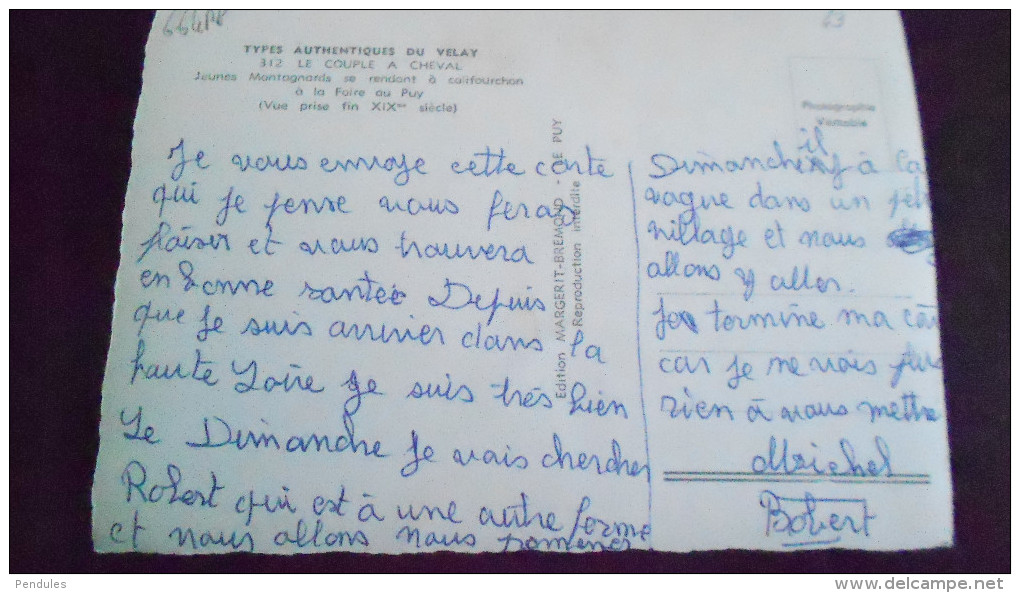 TYPES AUTHENTIQUES DU VELAY
312 LE COUPLE A CHEVAL
Jeunes Montagnards se rendant à califourchon
à la Foire au Puy
(Vue prise fin XIXme siècle)
63
Photographie
Véritable
Edition MARGERIT-BREMOND - LE PUY
Reproduction interdite
Je vous envoje cette carte
qui je pense vous feras
plaisir et vous trouvera
en bonne santée Depuis
que je suis arriver dans la
haute Loire je suis très bien
Le Dimanche je vais chercher
Robert qui est à une autre ferme
et nous allons nous promener
Dimanche il y à la
vogue dans un peti
village et nous
allons y aller.
Je termine ma car
car je ne vois plus
rien à vous mettre
Michel
Robert
Pendules
www.delcampe.net